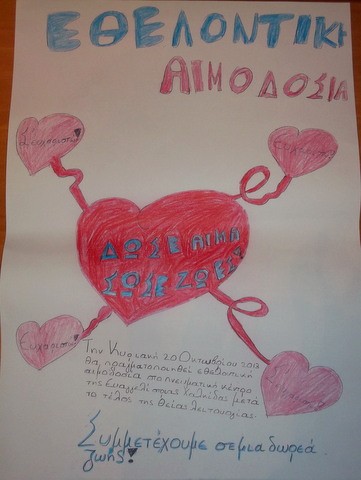 ΕΘΕΛΟΝΤΙΚΗ
ΑΙΜΟΔΟΣΙΑ
Ευχαριστώ!
Ευχαριστώ!
ΔΩΣΕ ΑΙΜΑ
ΣΩΣΕ ΖΩΕΣ!
Ευχαριστώ!
Την Κυριακή 20 Οκτωβρίου 2013
θα πραγματοποιηθεί εθελοντική
αιμοδοσία στο πνευματικό κέντρο
της Ευαγγελίστριας Χαλκίδας μετά
το τέλος της θείας λειτουργίας.
Συμμετέχουμε σε μια δωρεά
ζωής!